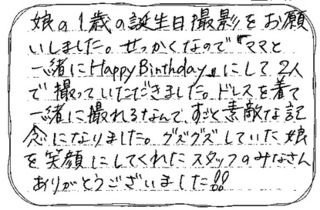 娘の1歳の誕生日撮影をお願
いしました。せっかくなので「ママと
一緒にHappy Birthday」にして2人
で撮っていただきました。ドレスを着て
一緒に撮れるなんて、すごく素敵な記
念になりました。グズグズしていた娘
を笑顔にしてくれたスタッフのみなさん
ありがとうございました!!